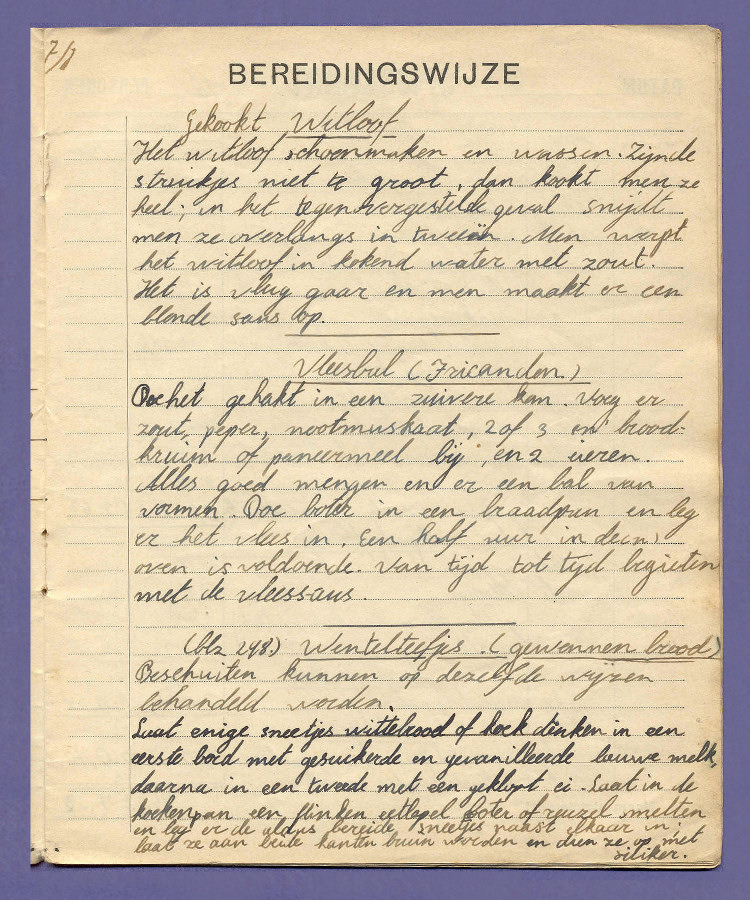 7/1
BEREIDINGSWIJZE
Gekookt Witloof
Het witloof schoonmaken en wassen. Zijnde
struikjes niet te groot, dan kookt men ze
heel; in het tegenovergestelde geval snijdt
men ze overlangs in tweeën. Men werpt
het witloof in kokend water met zout.
Het is vlug gaar en men maakt er een
blonde saus op.
Vleesbul (Fricandon.)
Doe het gehakt in een zuivere kom. Voeg er
zout, peper, nootmuskaat, 2 of 3 brood-
kruim of paneermeel bij, en 2 eieren.
Alles goed mengen en er een bal van
vormen. Doe boter in een braadpan en leg
er het vlees in. Een half uur in den
oven is voldoende. Van tijd tot tijd begieten
met de vleessaus.
(blz 248.) Wentelteefjes. (gewonnen brood)
Beschuiten kunnen op dezelfde wijzen
behandeld worden.
Laat enige sneetjes wittebrood of koek dinken in een
eerste bord met gesuikerde en gevanilleerde lauwe melk,
daarna in een tweede met een geklopt ei. Laat in de
koekenpan een flinken eetlepel boter of reuzel smelten
en leg er de aldus bereide sneetjes naast elkaar in;
laat ze aan beide kanten bruin worden en dien ze op met
siliker.